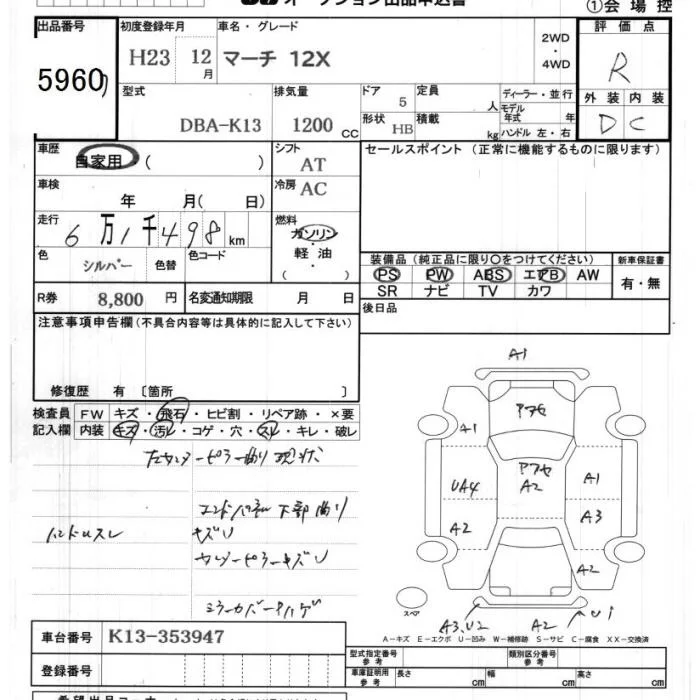 オークション出品申込書
①会場控
出品番号 初度登録年月 車名・グレード 2WD・4WD 評価点
5960 H23 12月 マーチ 12X R
型式 排気量 ドア 定員 人 ディーラー・並行
DBA-K13 1200 CC 5 モデル年式 年
外装 内装
D C
形状 HB 積載 kg ハンドル 左・右
車歴 自家用 ( ) シフト AT セールスポイント (正常に機能するものに限ります)
車検 年 月( 日) 冷房 AC
走行 6万1千498 km 燃料 ガソリン・軽油・( )
色 シルバー 色替 色コード
装備品 (純正品に限り〇をつけてください) 新車保証書
PS PW ABS エアB AW 有・無
SR ナビ TV カワ
R券 8,800 円 名変通知期限 月 日
後日品
注意事項申告欄 (不具合内容等は具体的に記入して下さい)
修復歴 有 〔箇所 〕
検査員記入欄 FW キズ・飛石・ヒビ割・リペア跡・×要
内装 キズ・汚レ・コゲ・穴・スレ・キレ・破レ
左センターピラー曲り 現状
エンドパネル 下部曲り
ハンドルスレ キズU
センターピラーキズU
ミラーカバーハゲ
A1
アフセ
A1
アフセ
A2
UA4
A1
A2
A3
A2
スペア
A3.U2
A2
A U1
A-キズ E-エクボ U-凹み W-補修跡 S-サビ C-腐食 XX-交換済
車台番号 K13-353947
型式指定番号 参考 類別区分番号 参考
登録番号
車庫証明用 参考 長さ cm 幅 cm 高さ cm
希望出品コーナー